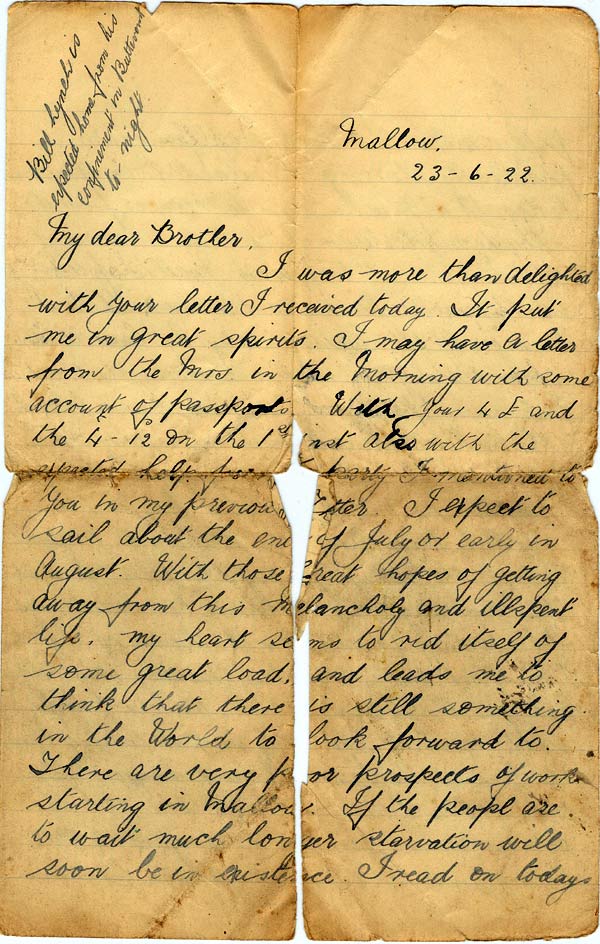 Bill Lynch is
expected home from his
confinement in Buttevant
to-night
Mallow.
23-6-22.
My dear Brother,
I was more than delighted
with your letter I received today. It put
me in great spirits. I may have a letter
from the Mrs. in the Morning with some
account of passports With your 4 £ and
the £4-12 on the 1st inst also with the
expected help from party I mentioned to
You in my previous letter. I expect to
sail about the end of July or early in
August. With those great hopes of getting
away from this melancholy and illspent
life. my heart seems to rid itself of
some great load, and leads me to
think that there is still something
in the World to look forward to.
There are very poor prospects of work
starting in Mallow. If the peopl are
to wait much longer starvation will
soon be in existence. I read on todays